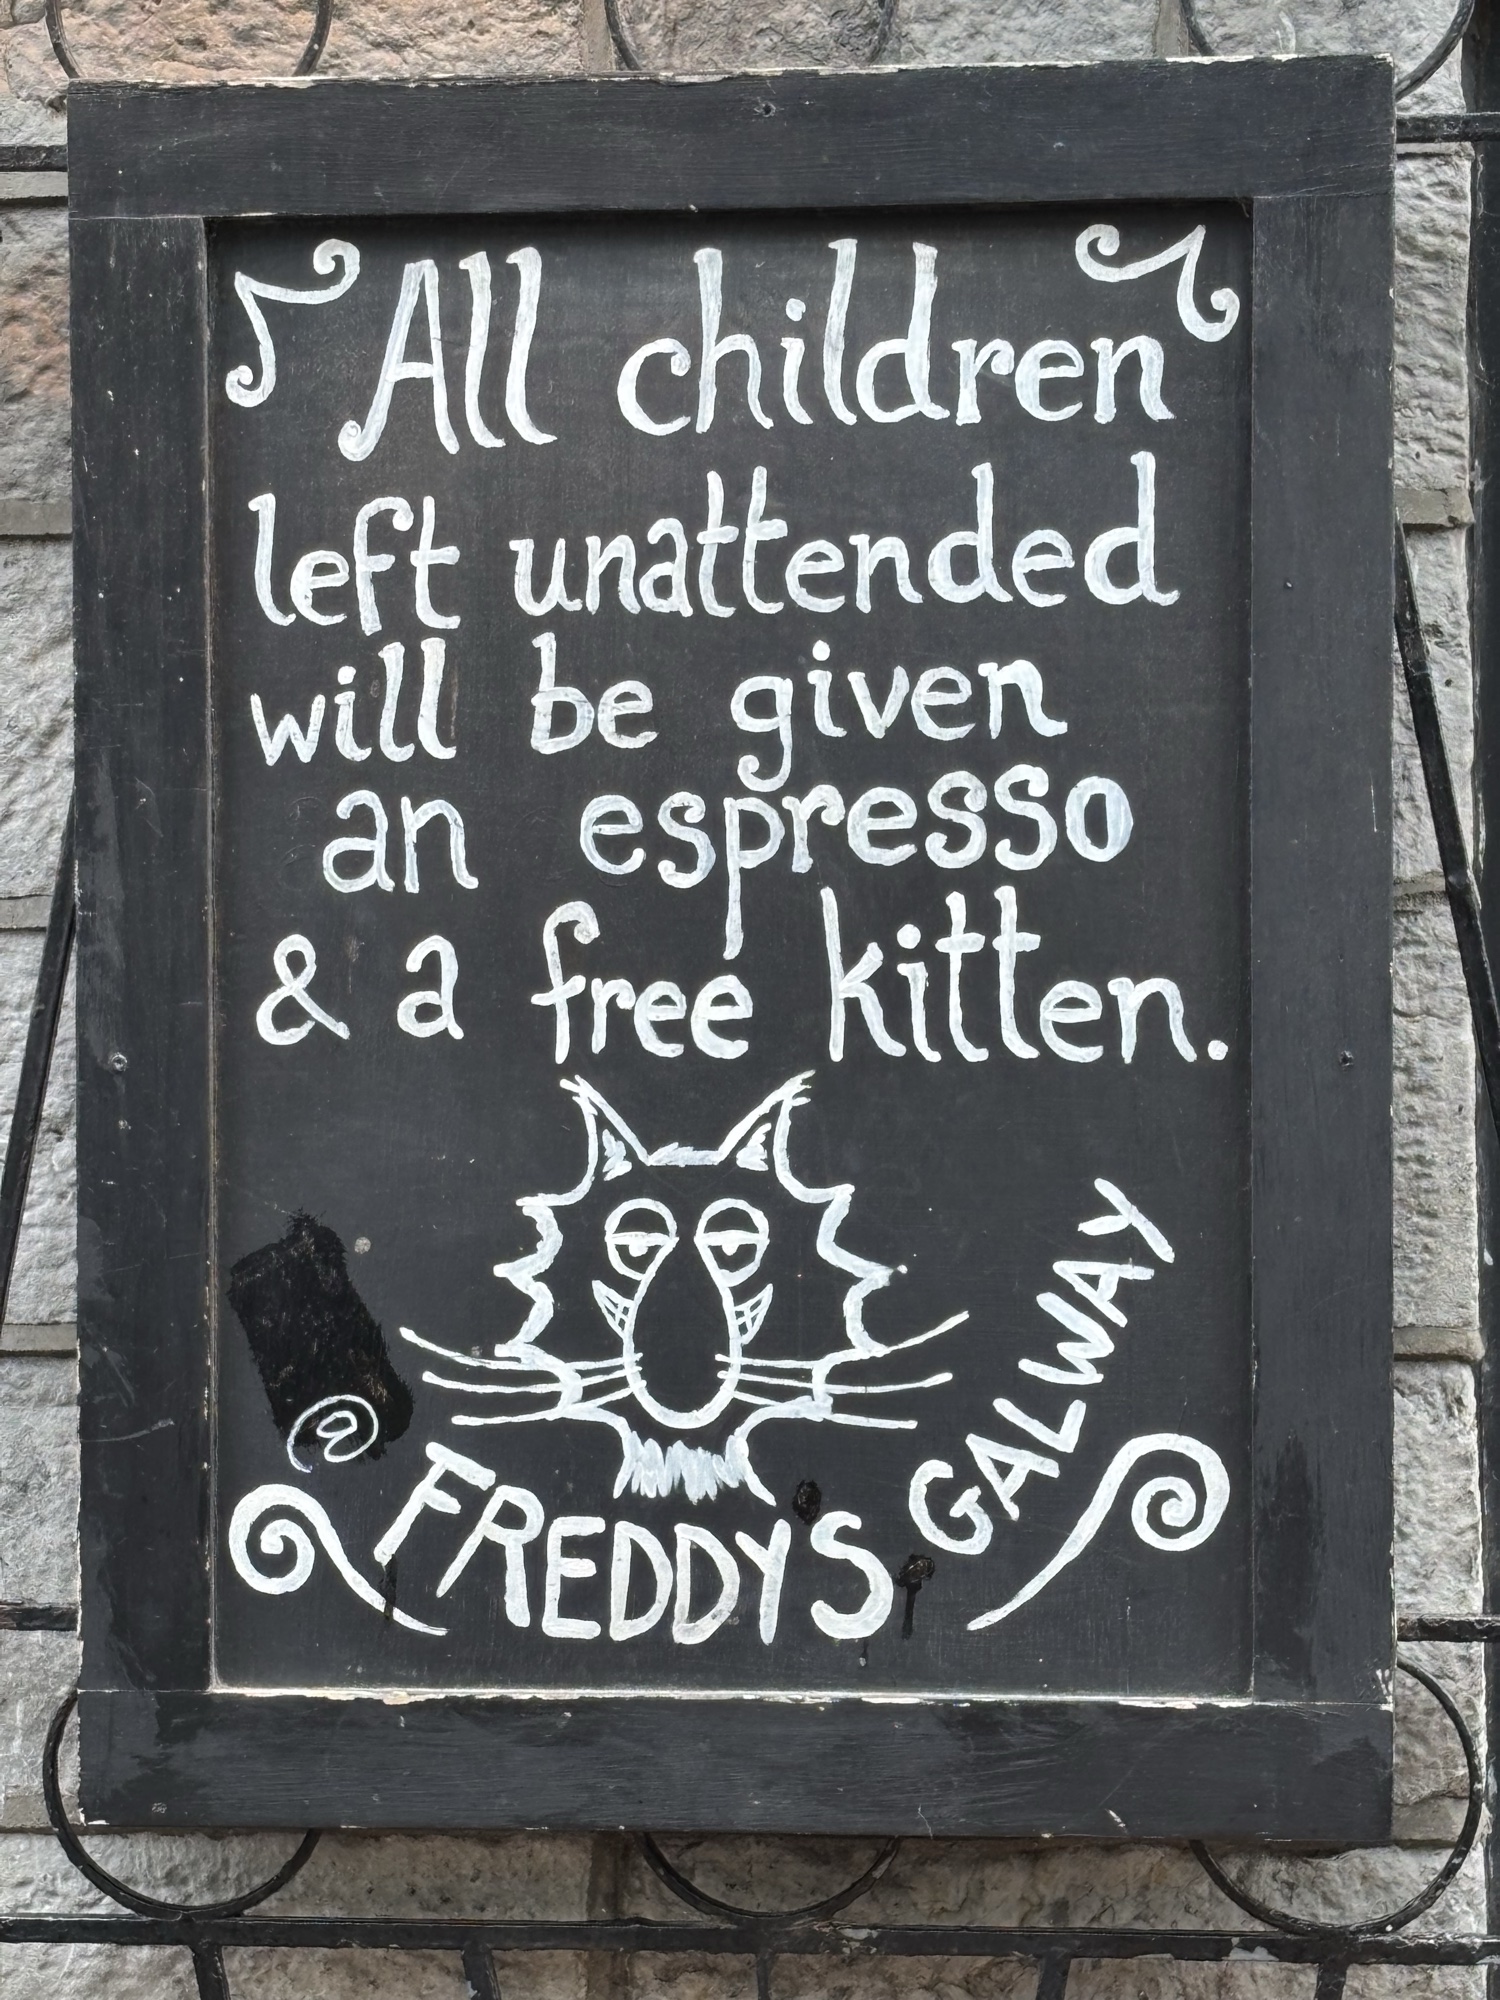 All children
left unattended
will be given
an espresso
& a free kitten.
@
FREDDY'S GALWAY